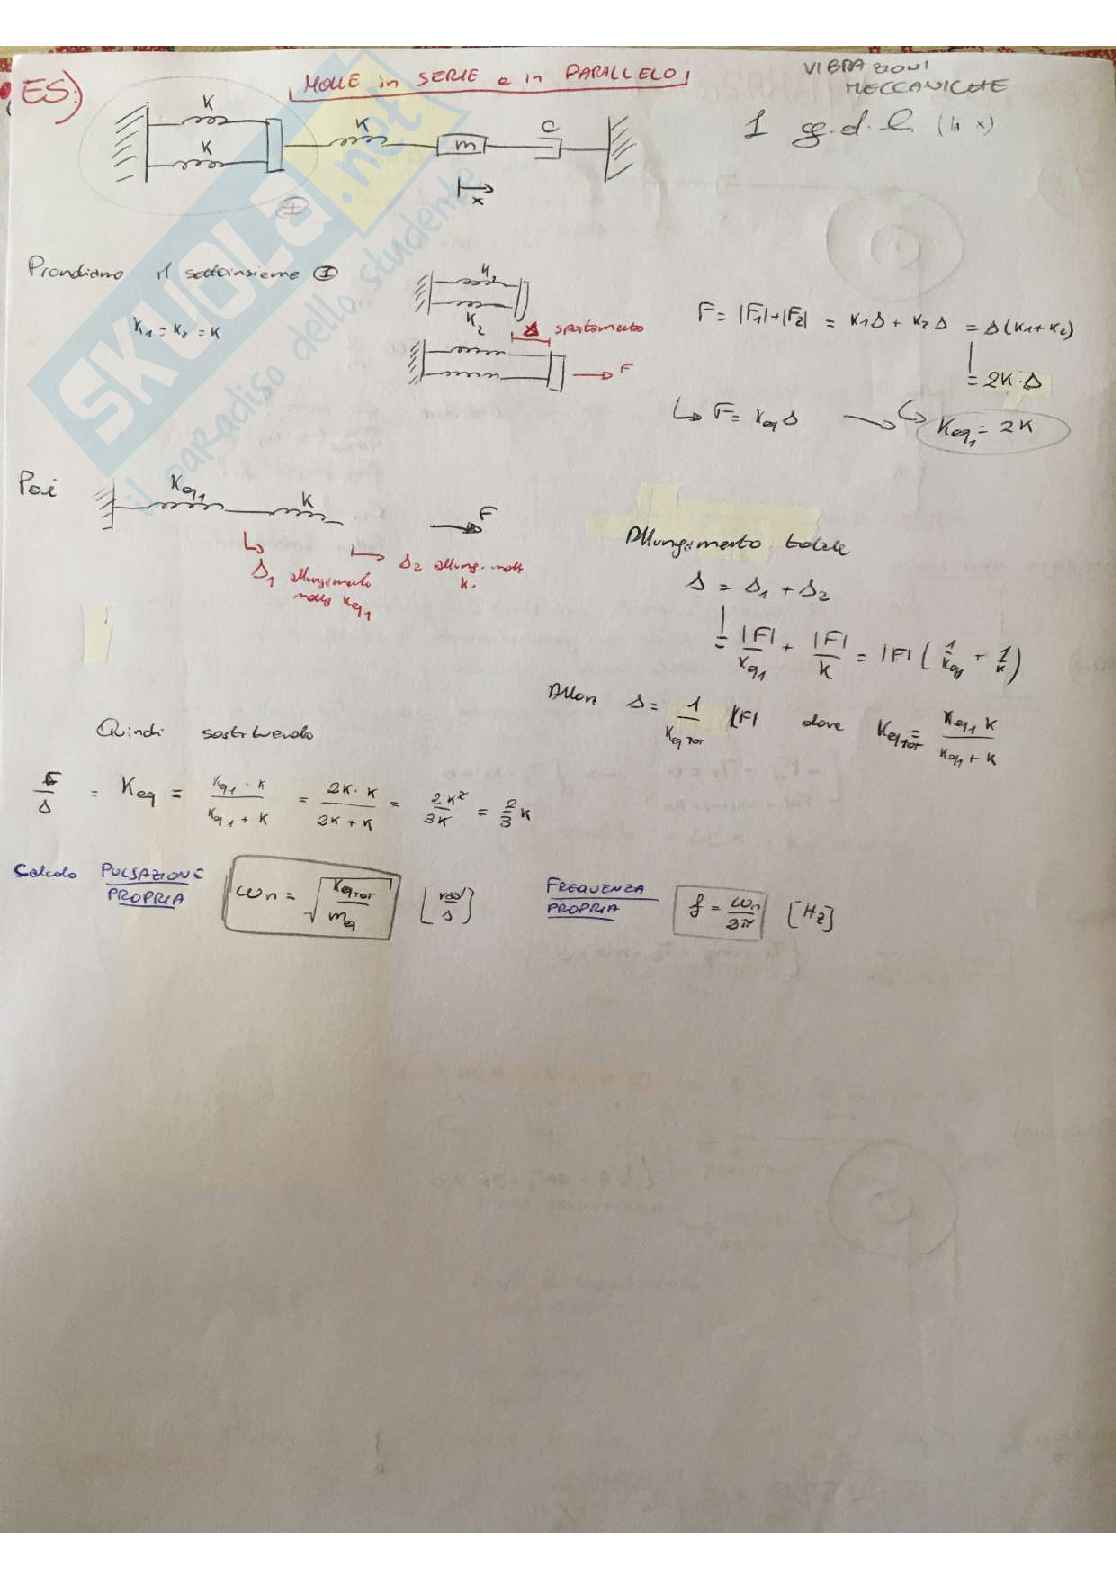 ES)
MOLLE in SERIE e in PARALLELO
VIBRAZIONI
MECCANICHE
1 g.d.l. (in x)
K
K
K
m
c
x
I
Prendiamo il sottoinsieme I
K₁ = K₂ = K
K₁
K₂
Δ spostamento
F
F = |F₁|+|F₂| = K₁Δ + K₂Δ = Δ(K₁+K₂)
= 2K·Δ
↳ F = Keq Δ → ↳ Keq₁ = 2K
Poi
Keq₁
K
F
Δ₁ allungimento
molla Keq₁
Δ₂ allung. molla
K.
Allungimento totale
Δ = Δ₁ + Δ₂
= |F|/Keq₁ + |F|/K = |F| (1/Keq₁ + 1/K)
Allora Δ = 1/Keq TOT |F| dove Keq TOT = Keq₁ K / Keq₁ + K
Quindi sostituendo
F/Δ = Keq = Keq₁ · K / Keq₁ + K = 2K · K / 2K + K = 2K² / 3K = 2/3 K
Calcolo PULSAZIONE
PROPRIA
ωn = √(Keq TOT / meq) [rad/s]
FREQUENZA
PROPRIA
f = ωn / 2π [Hz]
SKUOLA.net
il paradiso dello studente